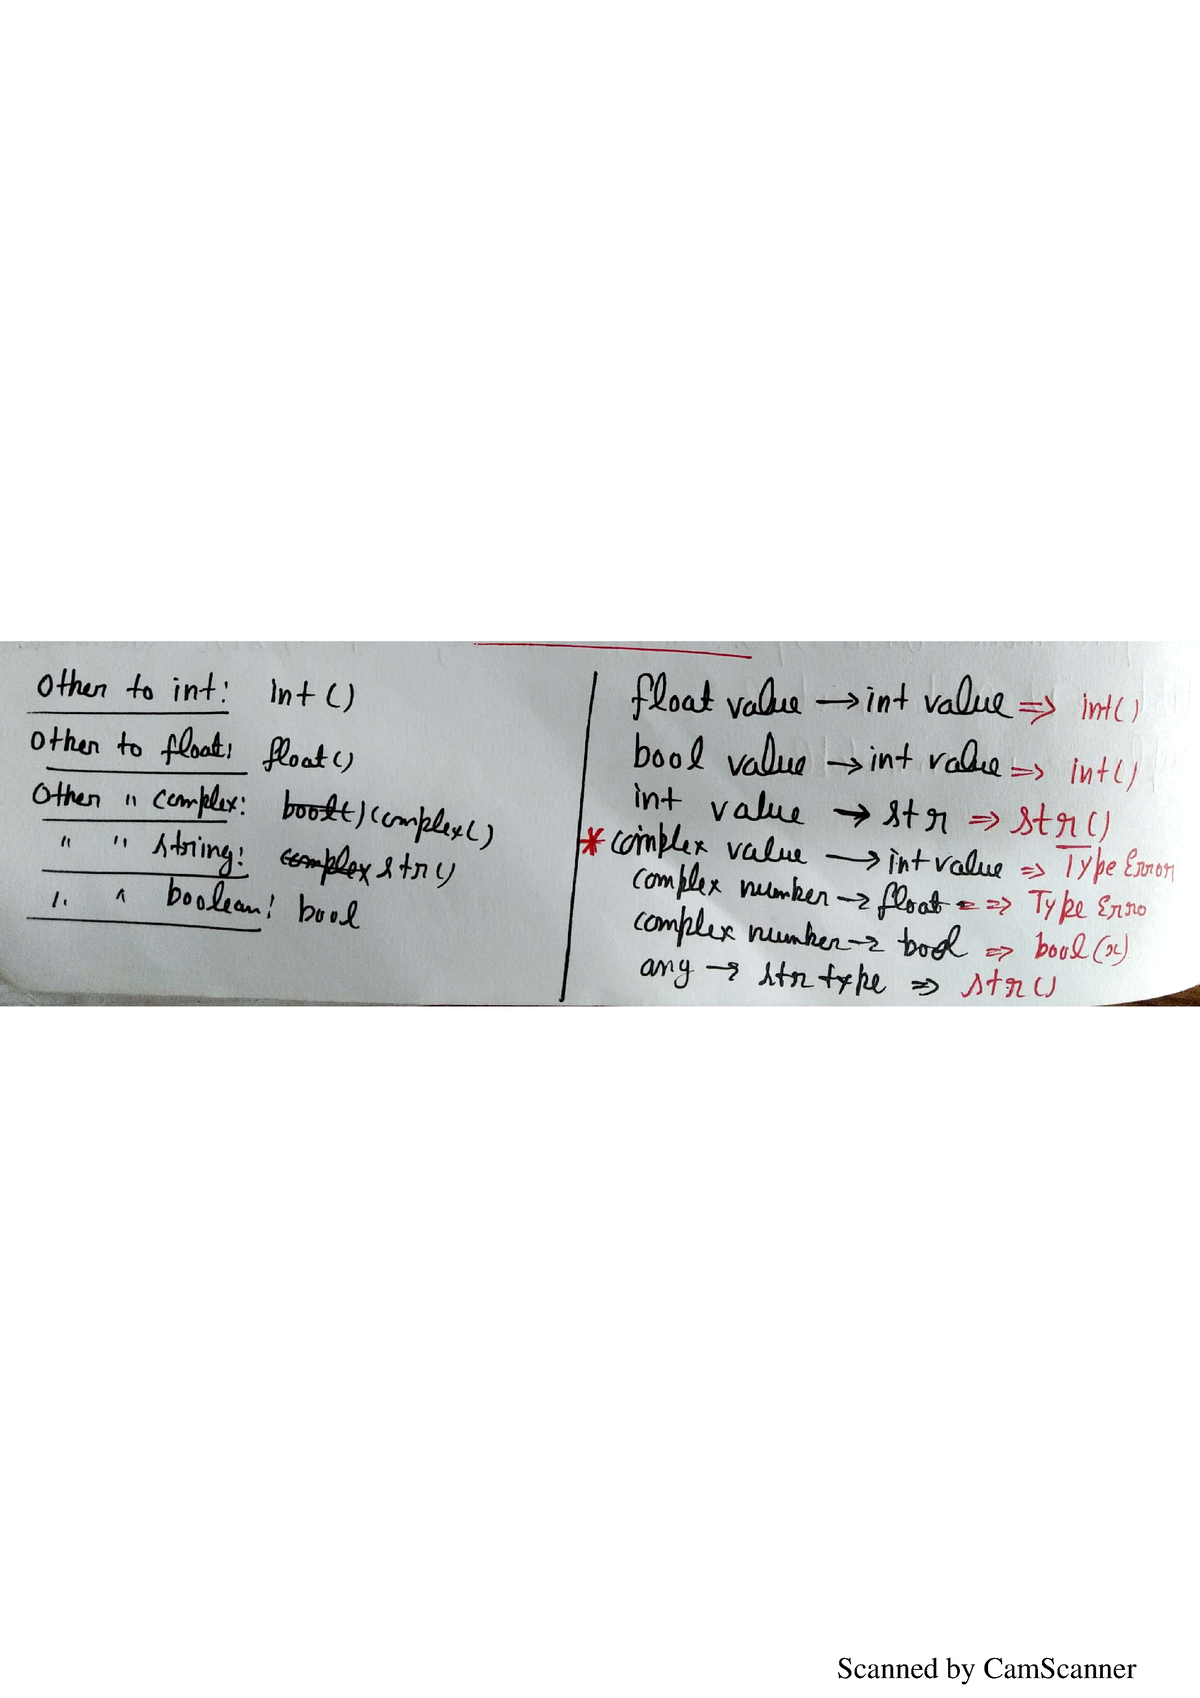 Other to int: int ()
Other to float: float ()
Other " complex: bool() complex()
" " string: complex str()
" " boolean: bool
float value → int value ⇒ int()
bool value → int value ⇒ int()
int value → str ⇒ str()
* complex value → int value ⇒ Type Error
complex number → float ⇒ Type Erro
complex number → bool ⇒ bool(x)
any → str type ⇒ str()
Scanned by CamScanner